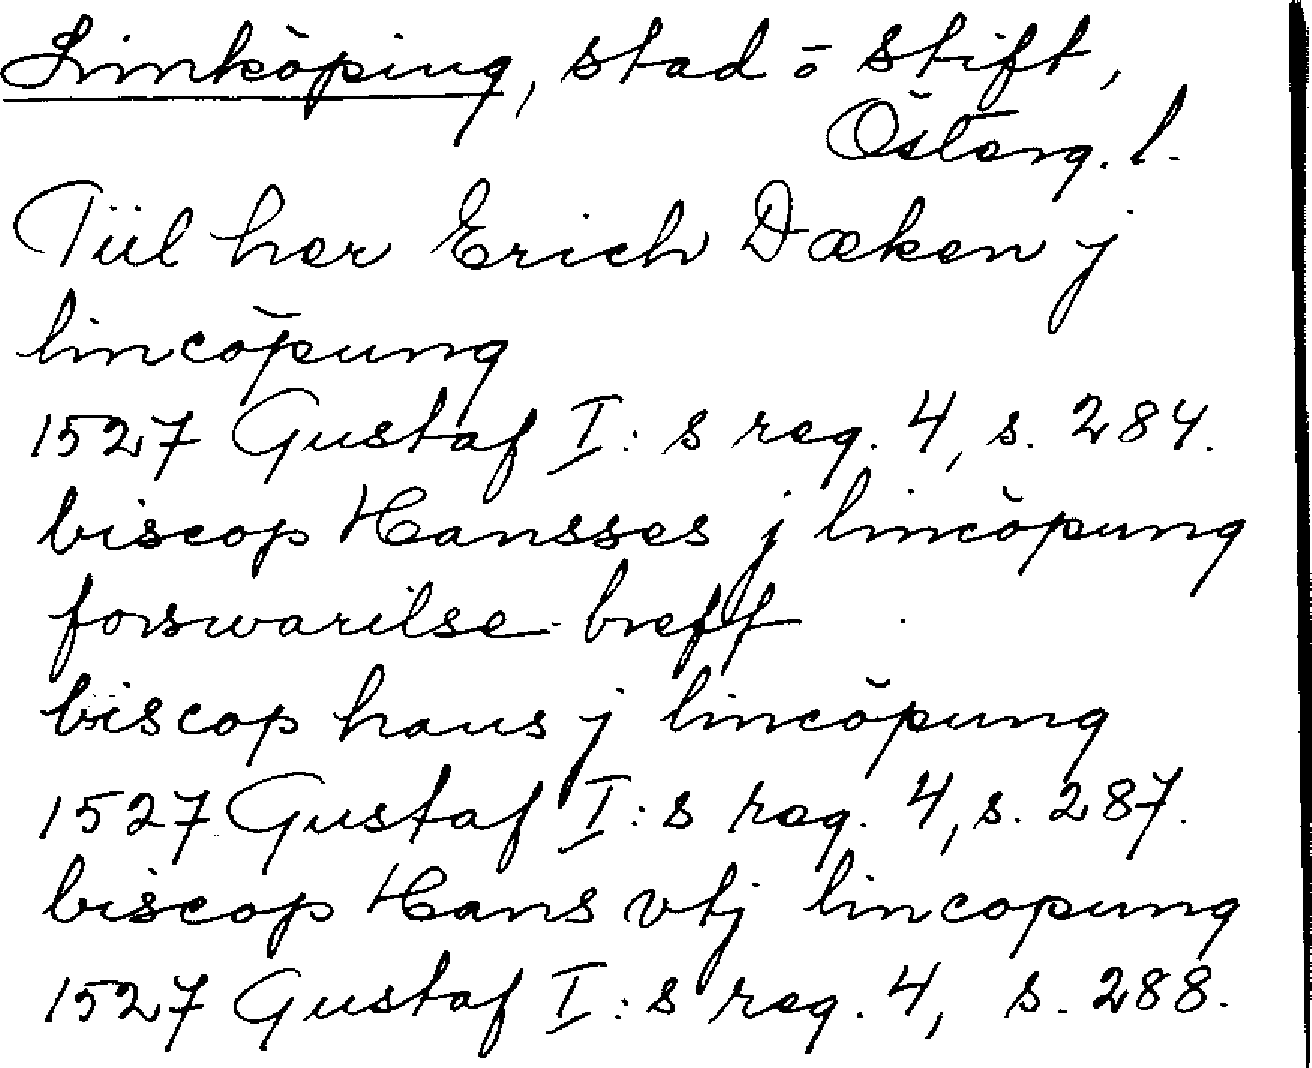 Linköping, stad o stift,
Österg. l.
Tiil her Erich Dæken j
lincöpung
1527 Gustaf I:s reg. 4, s. 284.
biscop Hansses j lincöpung
forswarilse breff
biscop hans j lincöpung
1527 Gustaf I:s reg. 4, s. 287.
biscop Hans vtj lincopung
1527 Gustaf I:s reg. 4, s. 288.